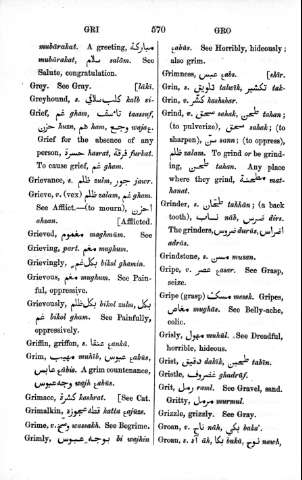 GRI 570 GRO
mubárakat. A greeting, مباركة
mubárakat, سلام salám. See
Salute, congratulation.
Grey. See Gray. [lúkí.
Greyhound, s. كلب سلاقي kalb si-
Grief, s. غم gham, تاسف taassuf,
حزن huzn, هم ham, وجع wajæ.
Grief for the absence of any
person, حسرة hasrat, فرقة furkat.
To cause grief, غم gham.
Grievance, s. ظلم zulm, جور jaur.
Grieve, v. (vex) ظلم zalam, غم gham.
See Afflict.—(to mourn), احزن
ahzan. [Afflicted.
Grieved, مغموم maghmúm. See
Grieving, part. مغم mughum.
Grievingly, بكل غم bikol ghamin.
Grievous, مغم mughum. See Pain-
ful, oppressive.
Grievously, بكل ظلم bikol zulm, بكل
غم bikol gham. See Painfully,
oppressively.
Griffin, griffon, s. عنقا ankâ.
Grim, مهيب muhíb, عبوس æabús,
عابس æabis. A grim countenance,
وجه عبوس wajh æabús.
Grimace, كشرة kashrat. [See Cat.
Grimalkin, قطة عجوزة katta æajúze.
Grime, v. وسخ wassakh. See Begrime.
Grimly, بوجه عبوس bi wajhin
æabús. See Horribly, hideously;
also grim.
Grimness, عبس æabs. [shír.
Grin, s. تدليق tadlík, تكشير tak-
Grin, v. كشر kashshar.
Grind, v. سحق sahak, طحن tahan;
(to pulverize), سحق sahak; (to
sharpen), سن sann; (to oppress),
ظلم zalam. To grind or be grind-
ing, طحن tahan. Any place
where they grind, مطحنة mat-
hanat.
Grinder, s. طحان tahhán; (a back
tooth), ناب náb, ضرس dirs.
The grinders, ضروس durús, اضراس
adrás.
Grindstone, s. مسن musan.
Gripe, v. عصر æasar. See Grasp,
seize.
Gripe (grasp) مسك mesek. Gripes,
مغاص mughás. See Belly-ache,
colic.
Grisly, مهول muhúl. See Dreadful,
horrible, hideous.
Grist, دقيق dakík, طحين tahín.
Gristle, غضروف ghadrúf.
Grit, رمل raml. See Gravel, sand.
Gritty, مرمل murmul.
Grizzle, grizzly. See Gray.
Groan, v. ناح náh, بكي baka'.
Groan, s. اه áh, بكا buká, نوح nowh,